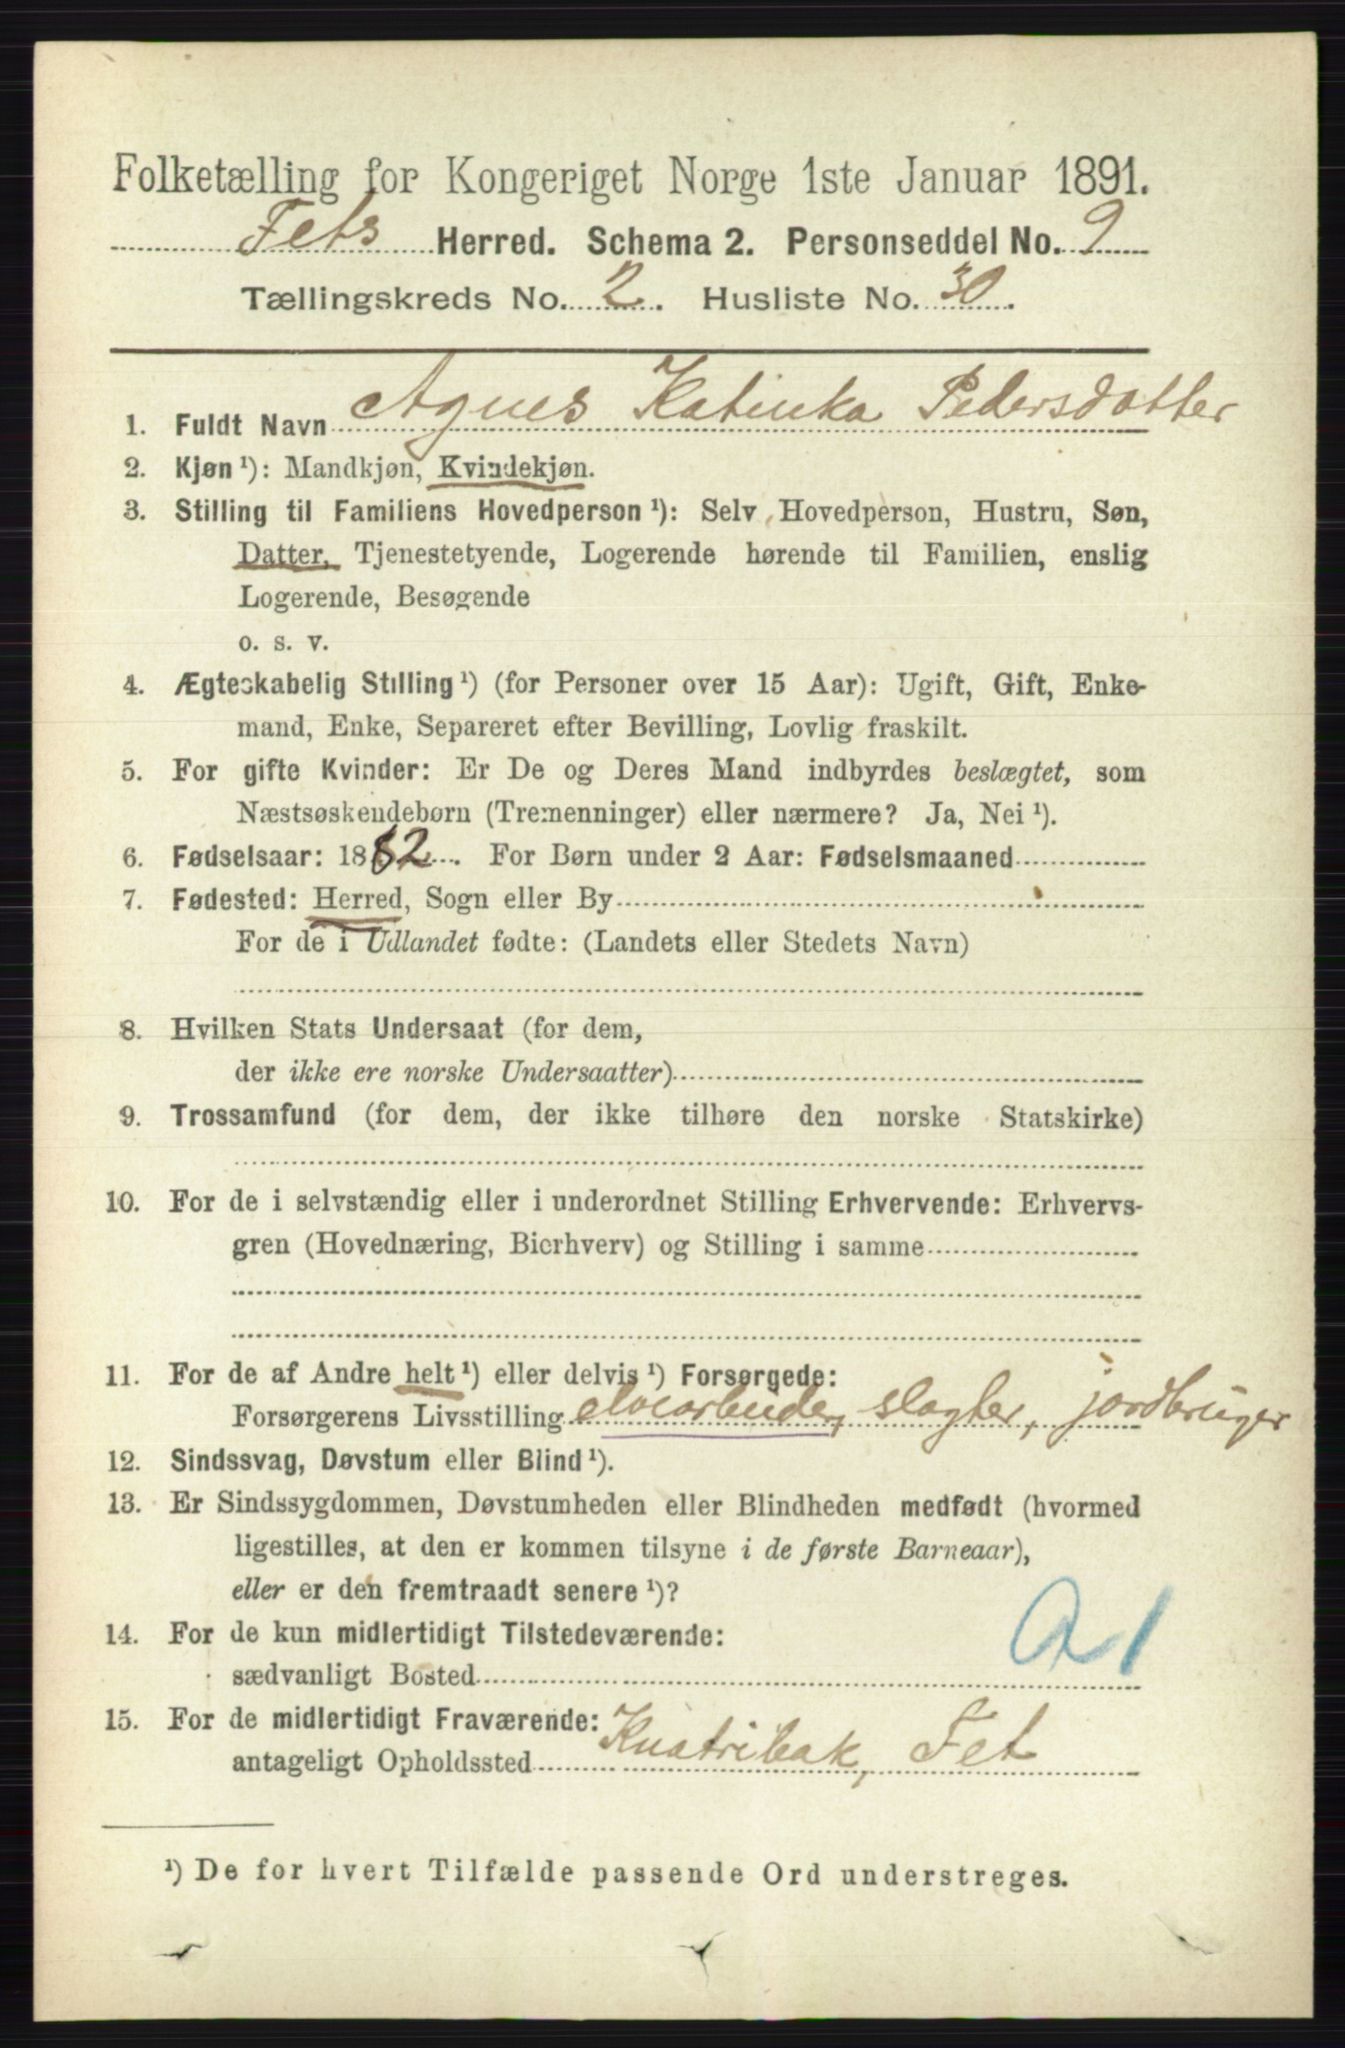 Folketælling for Kongeriget Norge 1ste Januar 1891.
Fets Herred. Schema 2. Personseddel No. 9
Tællingskreds No. 2. Husliste No. 30.
1. Fuldt Navn Agnes Katinka Pedersdatter
2. Kjøn ¹): Mandkjøn, Kvindekjøn.
3. Stilling til Familiens Hovedperson ¹): Selv Hovedperson, Hustru, Søn,
Datter, Tjenestetyende, Logerende hørende til Familien, enslig
Logerende, Besøgende
o. s. v.
4. Ægteskabelig Stilling ¹) (for Personer over 15 Aar): Ugift, Gift, Enke-
mand, Enke, Separeret efter Bevilling, Lovlig fraskilt.
5. For gifte Kvinder: Er De og Deres Mand indbyrdes beslægtet, som
Næstsøskendebørn (Tremenninger) eller nærmere? Ja, Nei ¹).
6. Fødselsaar: 1882. For Børn under 2 Aar: Fødselsmaaned
7. Fødested: Herred, Sogn eller By
For de i Udlandet fødte: (Landets eller Stedets Navn)
8. Hvilken Stats Undersaat (for dem,
der ikke ere norske Undersaatter)
9. Trossamfund (for dem, der ikke tilhøre den norske Statskirke)
10. For de i selvstændig eller i underordnet Stilling Erhvervende: Erhvervs-
gren (Hovednæring, Bierhverv) og Stilling i samme
11. For de af Andre helt ¹) eller delvis ¹) Forsørgede:
Forsørgerens Livsstilling elvearbeider, slagter, jordbruger
12. Sindssvag, Døvstum eller Blind ¹).
13. Er Sindssygdommen, Døvstumheden eller Blindheden medfødt (hvormed
ligestilles, at den er kommen tilsyne i de første Barneaar),
eller er den fremtraadt senere ¹)?
14. For de kun midlertidigt Tilstedeværende:
sædvanligt Bosted
15. For de midlertidigt Fraværende:
antageligt Opholdssted Knatribak, Fet
¹) De for hvert Tilfælde passende Ord understreges.